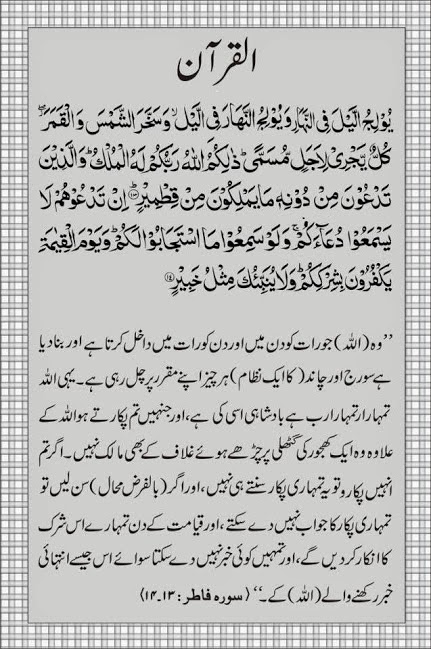 القرآن
يُوْلِجُ الَّيْلَ فِى النَّهَارِ وَيُوْلِجُ النَّهَارَ فِى الَّيْلِ ۙ وَسَخَّرَ الشَّمْسَ وَالْقَمَرَ ۖ
كُلٌّ يَّجْرِىْ لِاَجَلٍ مُّسَمًّى ؕ ذٰلِكُمُ اللّٰهُ رَبُّكُمْ لَهُ الْمُلْكُ ؕ وَالَّذِيْنَ
تَدْعُوْنَ مِنْ دُوْنِهٖ مَا يَمْلِكُوْنَ مِنْ قِطْمِيْرٍ ؕ﴿۱۳﴾ اِنْ تَدْعُوْهُمْ لَا
يَسْمَعُوْا دُعَآءَكُمْ ۚ وَلَوْ سَمِعُوْا مَا اسْتَجَابُوْا لَكُمْ ؕ وَيَوْمَ الْقِيٰمَةِ
يَكْفُرُوْنَ بِشِرْكِكُمْ ؕ وَلَا يُنَبِّئُكَ مِثْلُ خَبِيْرٍ ﴿۱۴﴾
’’وہ (اللہ) جو رات کو دن میں اور دن کو رات میں داخل کرتا ہے اور بنا دیا
ہے سورج اور چاند (کا ایک نظام) ہر چیز اپنے مقرر پر چل رہی ہے۔ یہی اللہ
تمہارا رتمہارا رب ہے بادشاہی اسی کی ہے، اور جنہیں تم پکارتے ہو اللہ کے
علاوہ وہ ایک کھجور کی گٹھلی پر چڑھے ہوئے غلاف کے بھی مالک نہیں۔ اگر تم
انہیں پکارو تو یہ تمہاری پکار سنتے ہی نہیں، اور اگر (بالفرض محال) سن لیں تو
تمہاری پکار کا جواب نہیں دے سکتے، اور قیامت کے دن تمہارے اس شرک
کا انکار کردیں گے، اور تمہیں کوئی خبر نہیں دے سکتا سوائے اس جیسے انتہائی
خبر رکھنے والے (اللہ) کے۔‘‘ (سورہ فاطر: ۱۳۔۱۴)